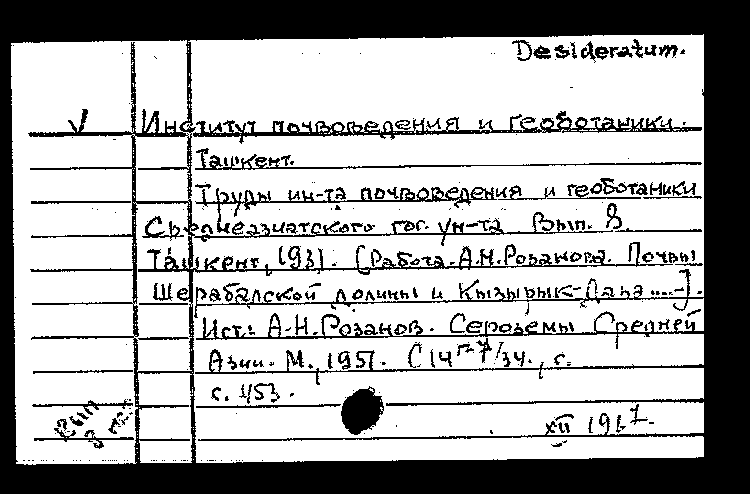 Desideratum.
V Институт почвоведения и геоботаники.
Ташкент.
Труды ин-та почвоведения и геоботаники
Среднеазиатского гос. ун-та. Вып. 8
Ташкент, 1931. (Работа А.Н.Розанова. Почвы
Шерабадской долины и Кызырык-Дана ....-).
Ист.: А.Н.Розанов. Сероземы Средней
Азии. М., 1951. с.
с. 453.
Вып
8 нет
XII 196